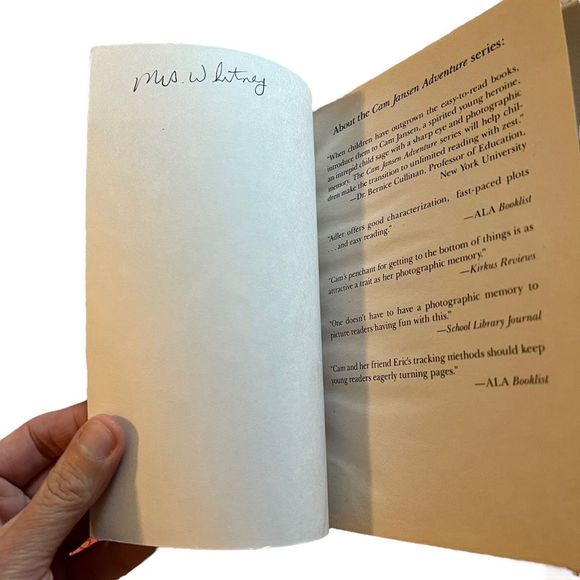 Mrs. Whitney
About the Cam Jansen Adventure series:
"When children have outgrown the easy-to-read books,
introduce them to Cam Jansen, a spirited young heroine,
an intrepid child sage with a sharp eye and photographic
memory. The Cam Jansen Adventure series will help chil-
dren make the transition to unlimited reading with zest."
—Dr. Bernice Cullinan, Professor of Education,
New York University
"Adler offers good characterization, fast-paced plots
. . . and easy reading."
—ALA Booklist
"Cam's penchant for getting to the bottom of things is as
attractive a trait as her photographic memory."
—Kirkus Reviews
"One doesn't have to have a photographic memory to
picture readers having fun with this."
—School Library Journal
"Cam and her friend Eric's tracking methods should keep
young readers eagerly turning pages."
—ALA Booklist